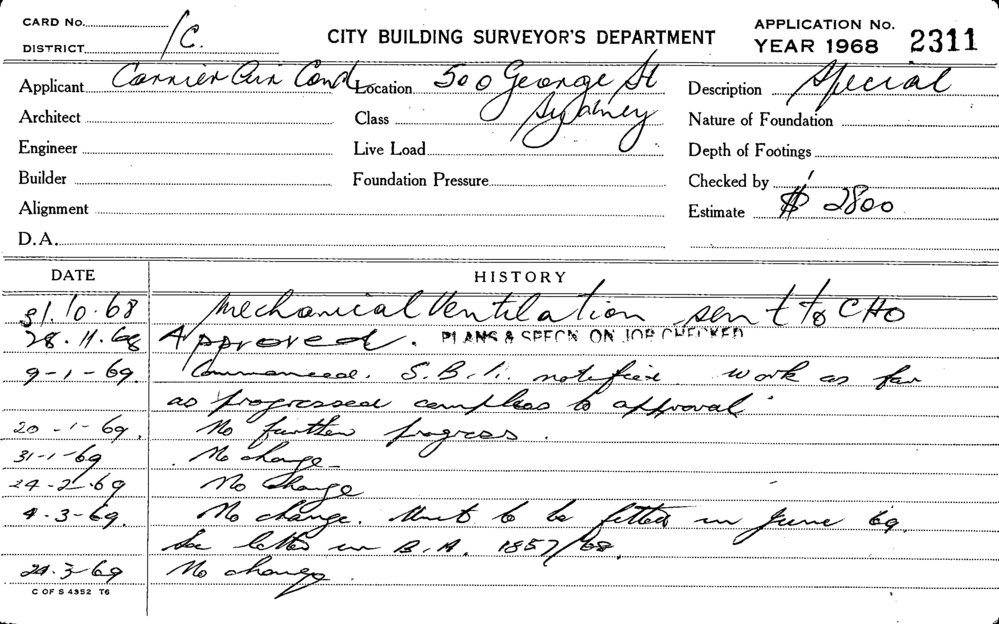 CARD No.
DISTRICT /C.
CITY BUILDING SURVEYOR'S DEPARTMENT
APPLICATION No.
YEAR 1968 2311
Applicant Carrier Air Cond Location 500 George St Description Special
Architect Class Sydney Nature of Foundation
Engineer Live Load Depth of Footings
Builder Foundation Pressure Checked by
Alignment Estimate $ 2800
D.A.
DATE HISTORY
31.10.68 Mechanical Ventilation sent to CHO
28.11.68 Approved. PLANS & SPECN ON JOB CHECKED
9-1-69. Commenced. S.B.I. notified work as far
as progressed complies to approval
20-1-69. No further progress.
31-1-69 No change
24-2-69 No change
4-3-69. No change. Unit to be fitted in June 69.
See letter in B.A. 1857/68.
24.3-69 No change.
C OF S 4352 T6